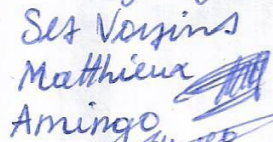 Ses Voisins
Matthieux
Amingo